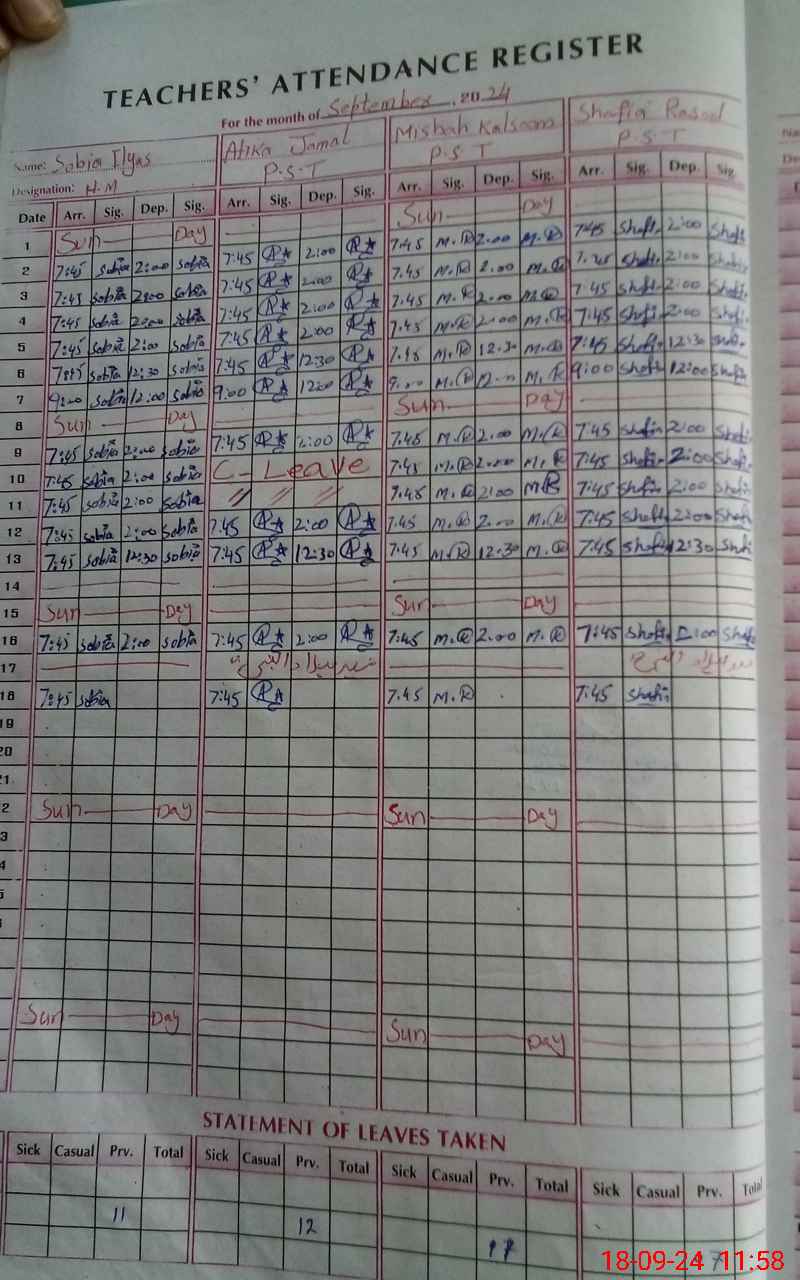 TEACHERS' ATTENDANCE REGISTER
For the month of September, 2024
Name: Sobia Ilyas Atika Jamal Misbah Kalsoom Shafia Rasool
Designation: H.M P.S.T P.S T P.S.T
Date Arr. Sig. Dep. Sig. Arr. Sig. Dep. Sig. Arr. Sig. Dep. Sig. Arr. Sig. Dep. Sig.
1 Sun Day Sun Day
2 7:45 sobia 2:00 sobia 7:45 2:00 7.45 M.R 2.00 M.R 7:45 Shafi. 2:00 Shafi
3 7:45 sobia 2:00 sobia 7:45 2:00 7.45 M.R 2.00 M.R Shafi. 2:00
4 7:45 sobia 2:00 sobia 7:45 2:00 7.45 M.R 2.00 M.R 7:45 Shafi. 2:00 Shafi.
5 7:45 sobia 2:00 sobia 7:45 2:00 7.45 M.R 2.00 M.R 7:45 Shafi. 2:00 Shafi.
6 7:45 sobia 12:30 sobia 7:45 12:30 7.45 M.R 12.30 M.R 7:45 Shafi. 12:30 Shafi.
7 9:00 sobia 12:00 sobia 9:00 12:00 9.00 M.R 12.00 M.R 9:00 Shafi 12:00 Shafi
8 Sun Day Sun Day
9 7:45 sobia 2:00 sobia 7:45 2:00 7.45 M.R 2.00 M.R 7:45 Shafi 2:00 Shafi.
10 7:45 sobia 2:00 sobia C-Leave 7.45 M.R 2.00 M.R 7:45 Shafi 2:00 Shafi.
11 7:45 sobia 2:00 sobia // // // M.R 2:00 M.R 7:45 Shafi 2:00 Shafi
12 7:45 sobia 2:00 sobia 7:45 2:00 7.45 M.R 2.00 M.R 7:45 Shafi 2:00 Shafi
13 7:45 sobia 12:30 sobia 7:45 12:30 7.45 M.R 12.30 M.R 7:45 Shafi 12:30 Shafi
14
15 Sun Day Sun Day
16 7:45 sobia 2:00 sobia 7:45 2:00 7.45 M.R 2.00 M.R 7:45 Shafi. 2:00 Shafi
17
18 7:45 sobia 7:45 7.45 M.R 7:45 Shafi.
19
20
21
2 Sun Day Sun Day
3
4
5
Sun Day Sun Day
STATEMENT OF LEAVES TAKEN
Sick Casual Prv. Total Sick Casual Prv. Total Sick Casual Prv. Total Sick Casual Prv. Total
11 12 17
18-09-24 11:58